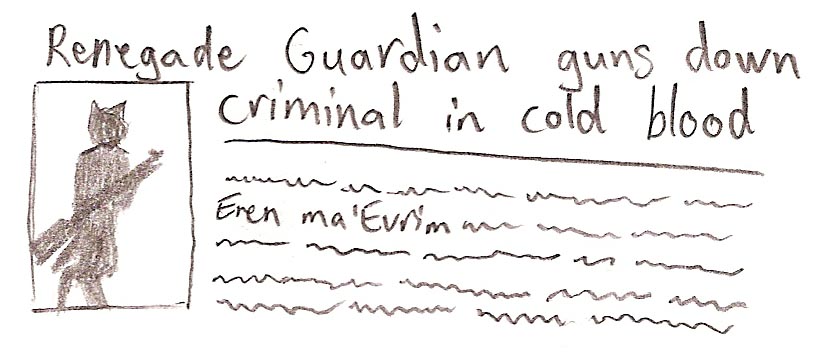 Renegade Guardian guns down
criminal in cold blood
Eren ma'Evrim